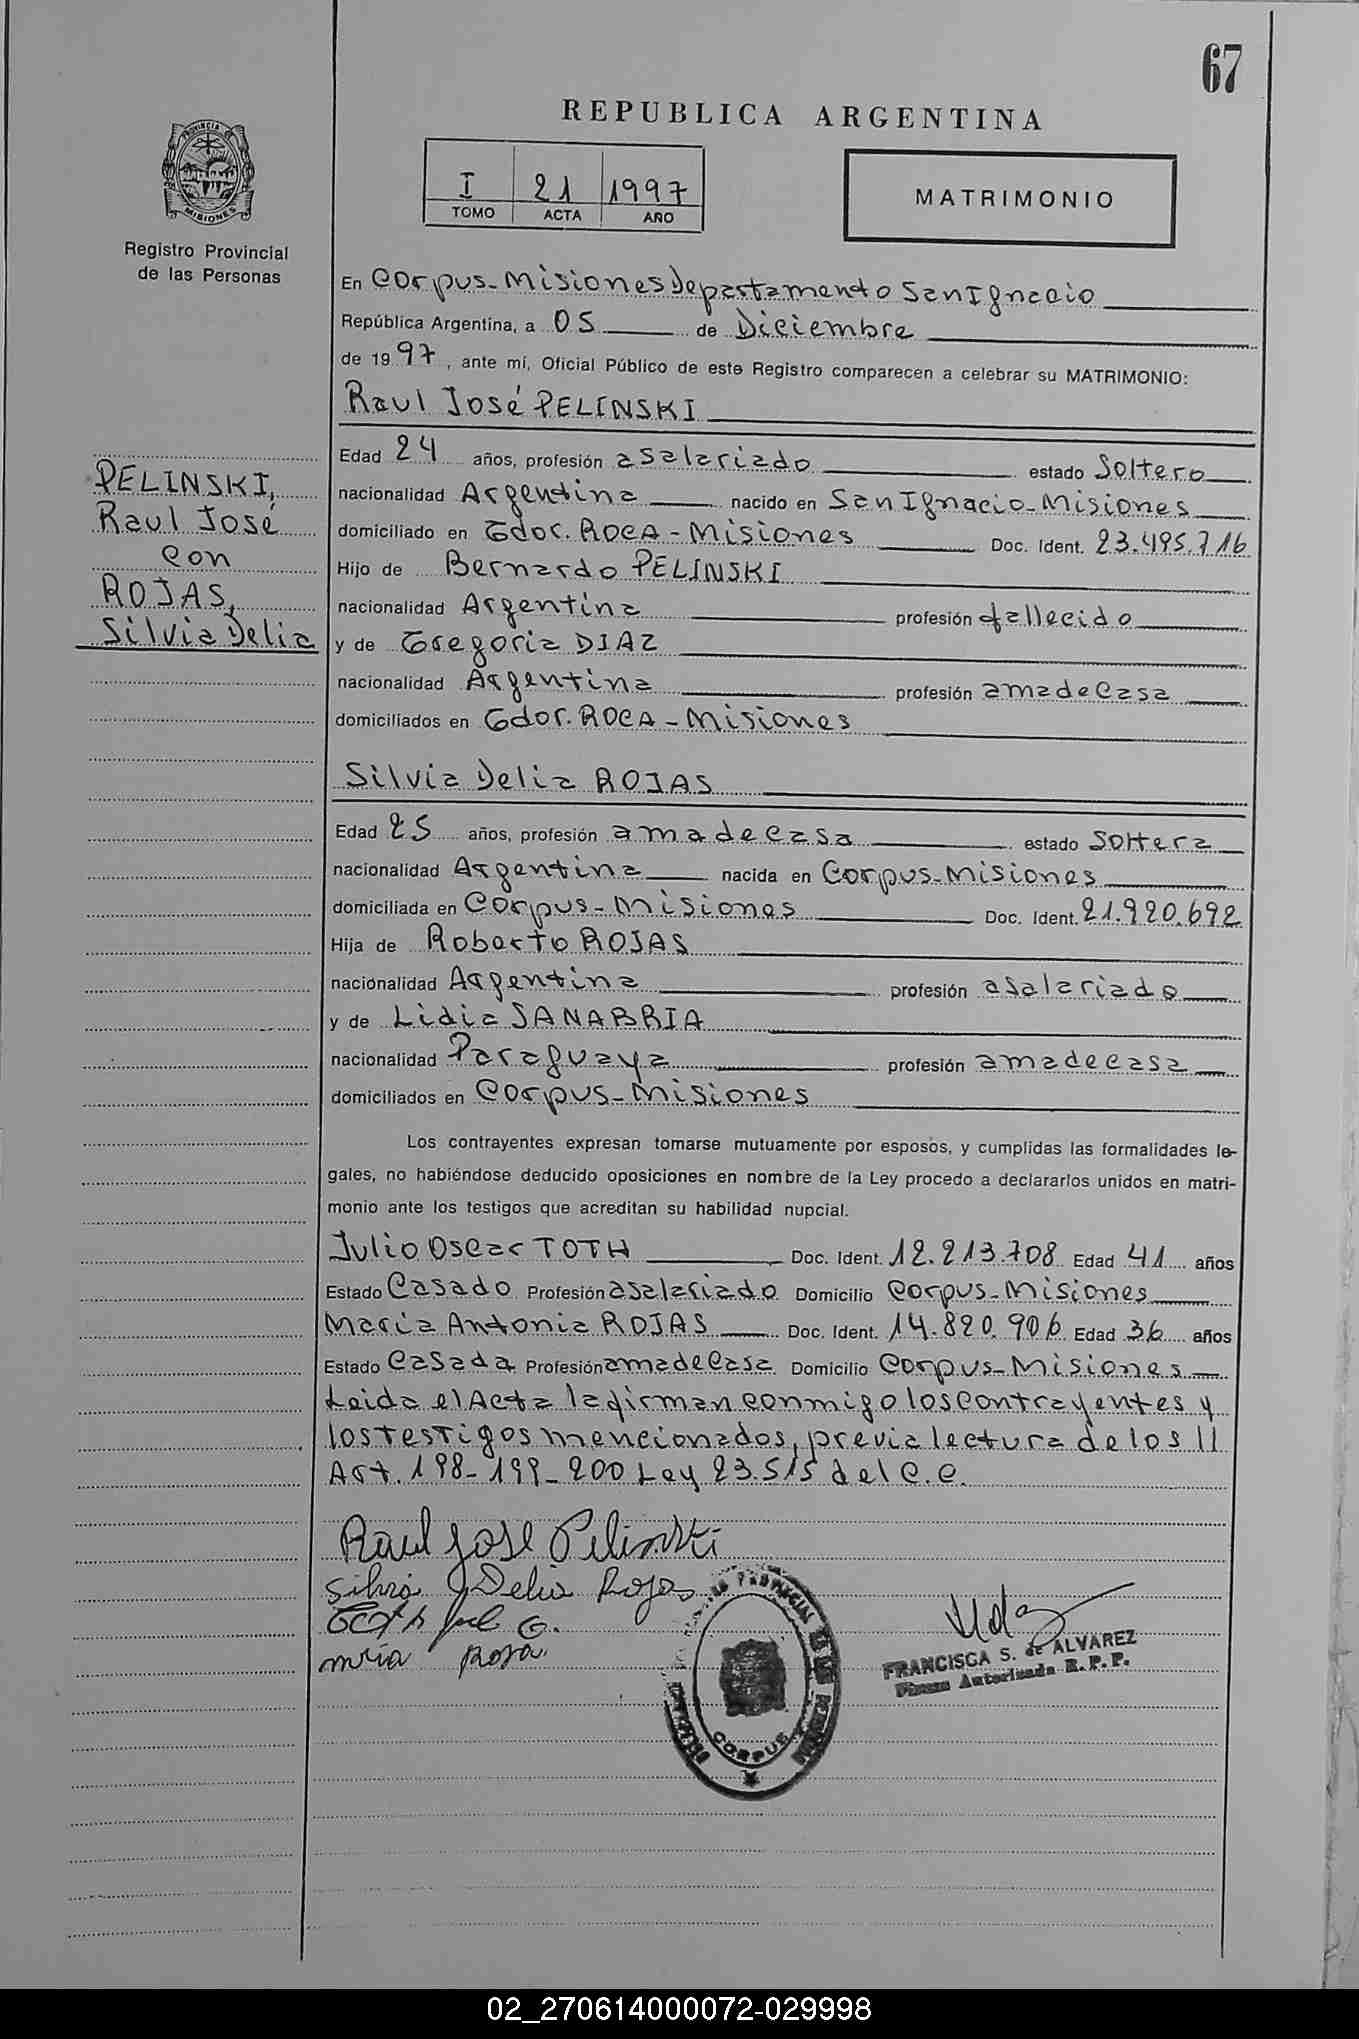 67
REPUBLICA ARGENTINA
I 21 1997
TOMO ACTA AÑO
MATRIMONIO
PROVINCIA DE
MISIONES
Registro Provincial
de las Personas
PELINSKI,
Raul José
con
ROJAS,
Silvia Delia
En Corpus-Misiones Departamento San Ignacio
República Argentina, a 05 de Diciembre
de 1997, ante mí, Oficial Público de este Registro comparecen a celebrar su MATRIMONIO:
Raul José PELINSKI
Edad 24 años, profesión asalariado estado Soltero
nacionalidad Argentina nacido en San Ignacio-Misiones
domiciliado en Gdor. ROCA-Misiones Doc. Ident. 23.495.716
Hijo de Bernardo PELINSKI
nacionalidad Argentina profesión fallecido
y de Gregoria DIAZ
nacionalidad Argentina profesión ama de casa
domiciliados en Gdor. ROCA-Misiones
Silvia Delia ROJAS
Edad 25 años, profesión ama de casa estado Soltera
nacionalidad Argentina nacida en Corpus-Misiones
domiciliada en Corpus-Misiones Doc. Ident. 21.920.692
Hija de Roberto ROJAS
nacionalidad Argentina profesión asalariado
y de Lidia SANABRIA
nacionalidad Paraguaya profesión ama de casa
domiciliados en Corpus-Misiones
Los contrayentes expresan tomarse mutuamente por esposos, y cumplidas las formalidades le-
gales, no habiéndose deducido oposiciones en nombre de la Ley procedo a declararlos unidos en matri-
monio ante los testigos que acreditan su habilidad nupcial.
Julio Oscar TOTH Doc. Ident. 12.213.708 Edad 41 años
Estado Casado Profesión asalariado Domicilio Corpus-Misiones
Maria Antonia ROJAS Doc. Ident. 14.820.906 Edad 36 años
Estado Casada Profesión ama de casa Domicilio Corpus-Misiones
Leida el Acta la firman conmigo los contrayentes y
los testigos mencionados, previa lectura de los 11
Art. 198-199-200 Ley 23.515 del C.C.
Raul Jose Pelinski
Silvia Delia Rojas
PROVINCIAL DE
CORPUS
FRANCISCA S. de ALVAREZ
Firma Autorizada R.P.P.
02_270614000072-029998